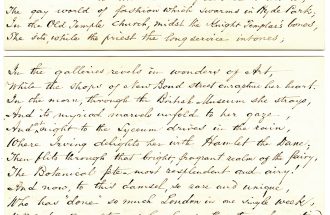 The gay world of fashion which swarms in Hyde Park,
In the Old Temple Church, midst the Knight Templars' bones,
She sits while the priest the long service intones.
In the galleries revels in wonders of Art,
While the Shops of New Bond street enrapture her heart.
In the morn, through the British Museum she strays,
And its myriad marvels unfold to her gaze,
And at night to the Lyceum drives in the rain,
Where Irving delights her with Hamlet the Dane;
Then flits through that bright, fragrant realm of the fairy,
The Botanical fête, most resplendent and airy!
And now, to this damsel, so rare and unique,
Who has "done" so much London in one single week,